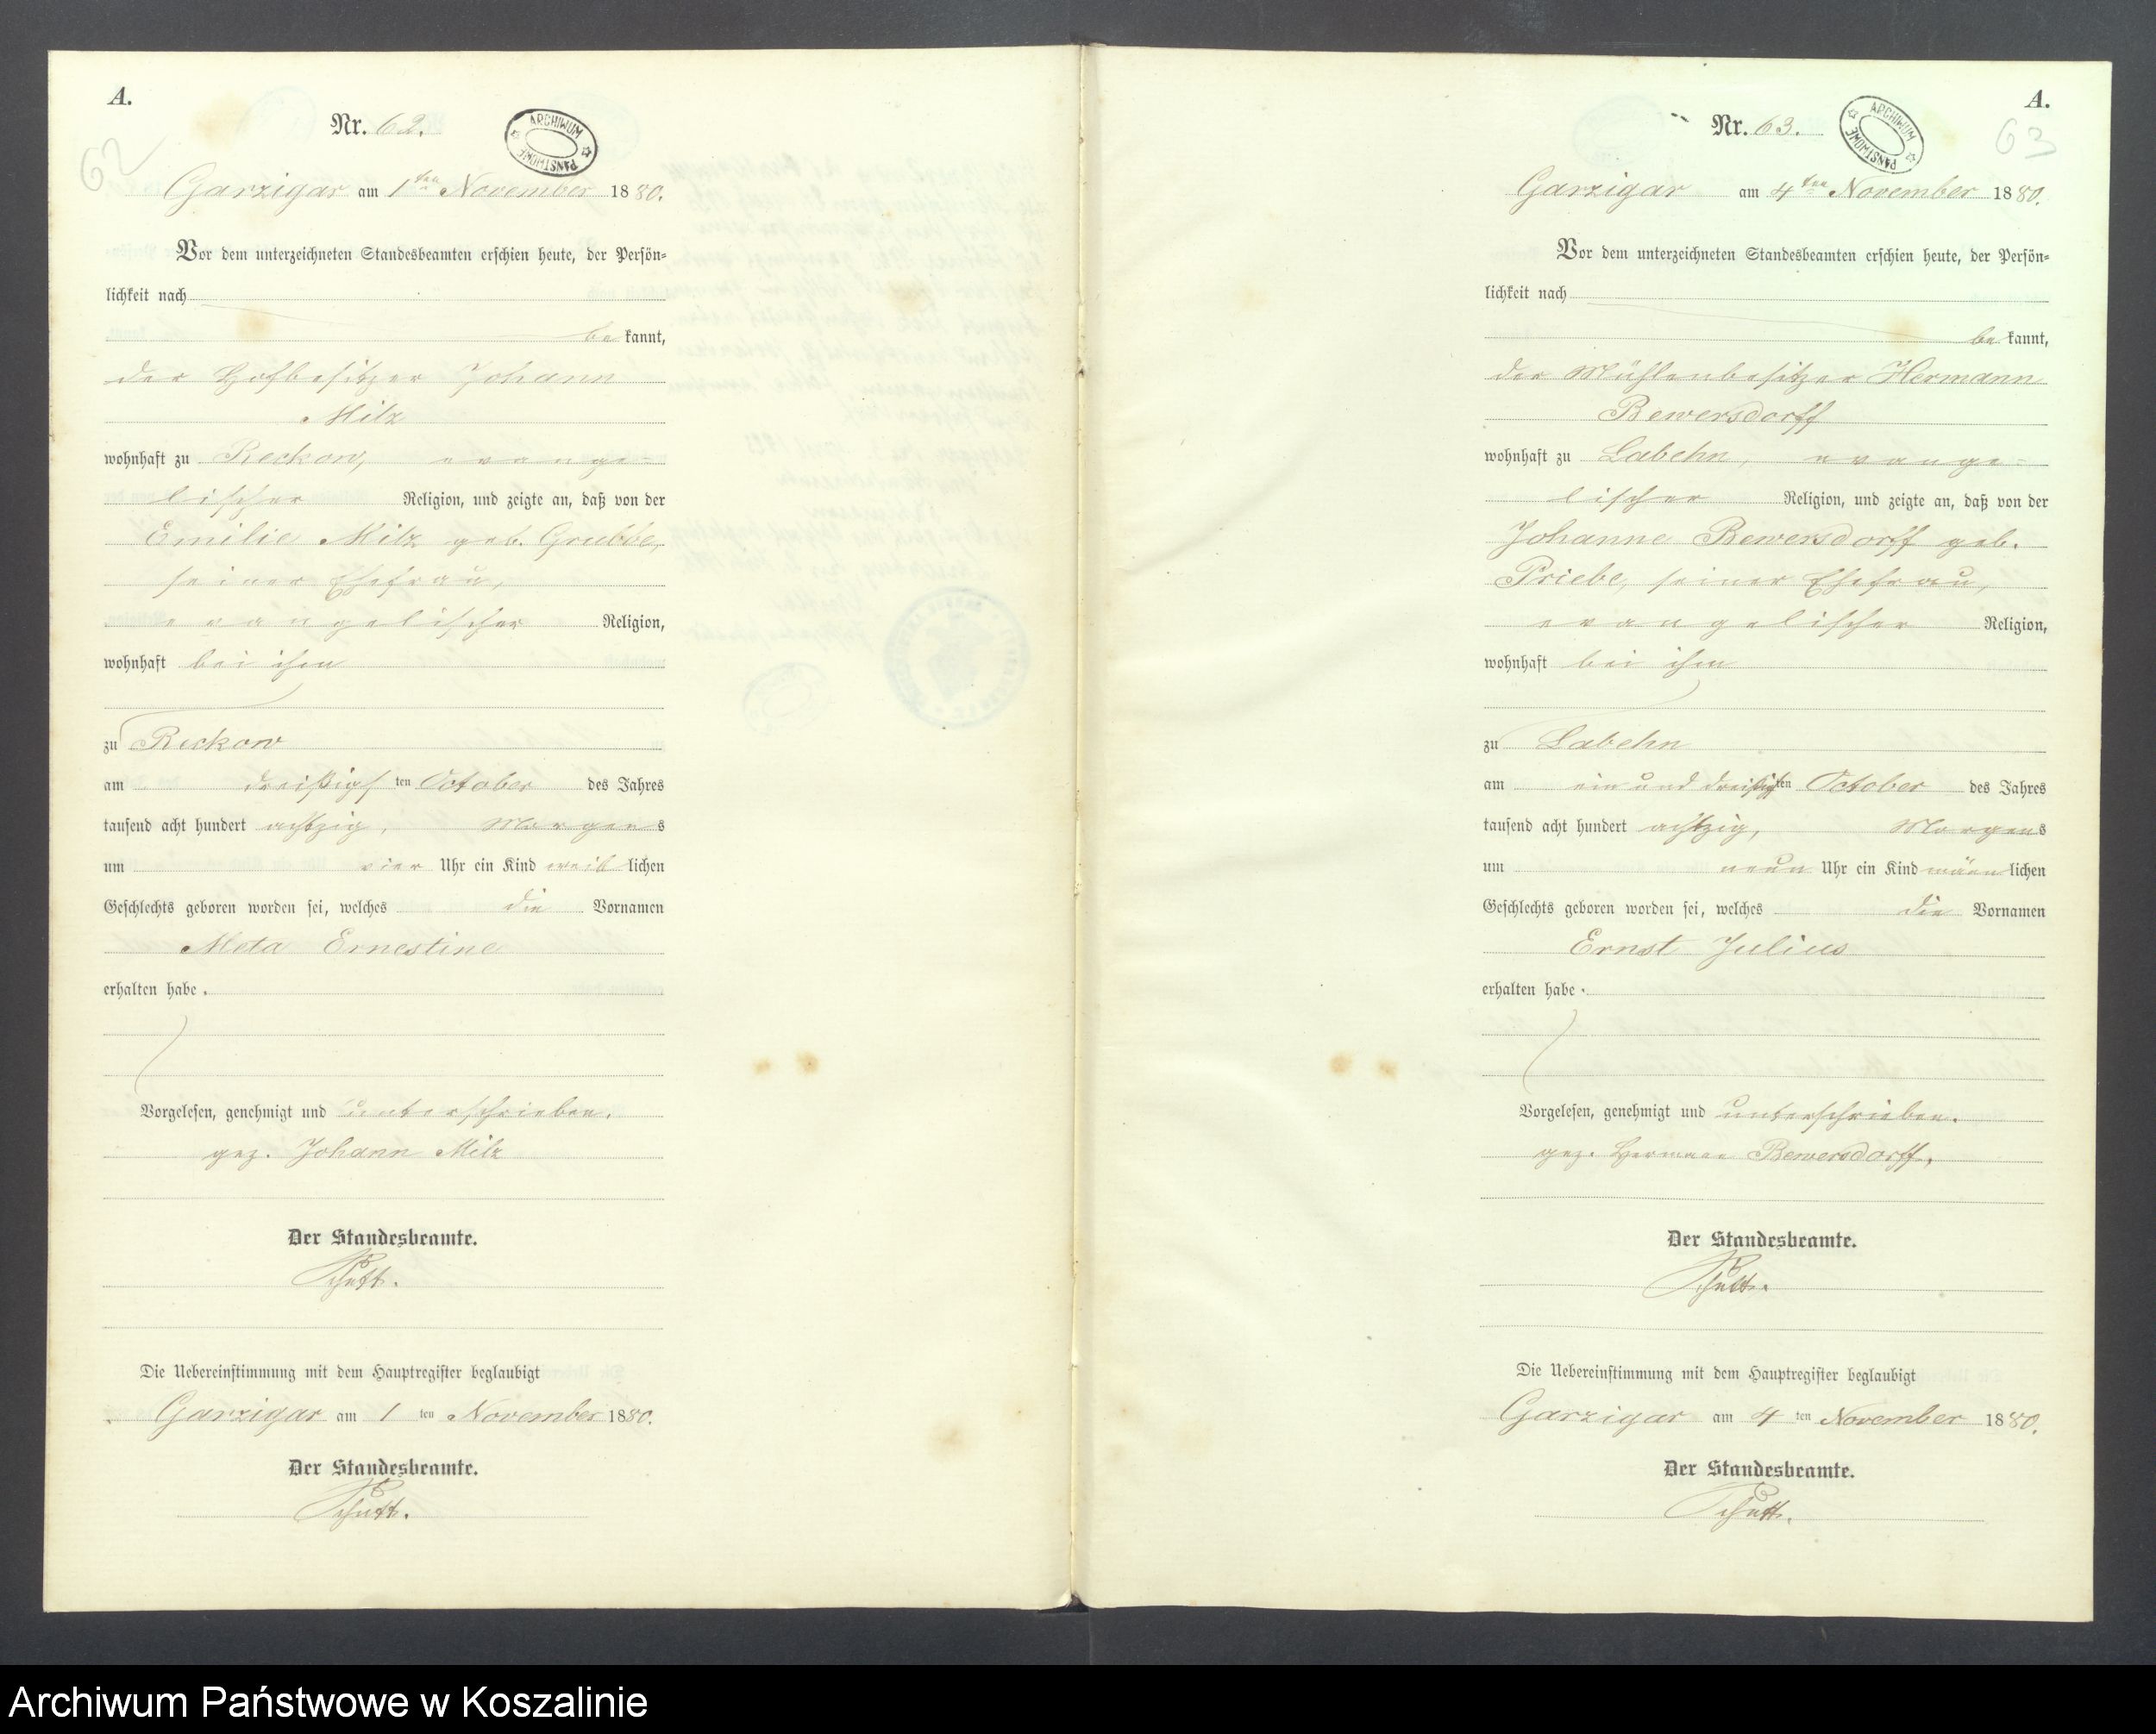 A.
62
Nr. 62.
ARCHIWUM PAŃSTWOWE
Garzigar am 1ten November 1880.
Vor dem unterzeichneten Standesbeamten erschien heute, der Persön=
lichkeit nach
be kannt,
der Hofbesitzer Johann
Milz
wohnhaft zu Reckow, evange=
lischer Religion, und zeigte an, daß von der
Emilie Milz geb. Grubbe,
seiner Ehefrau,
evangelischer Religion,
wohnhaft bei ihm
zu Reckow
am dreißigs ten October des Jahres
tausend acht hundert achtzig, Morgens
um vier Uhr ein Kind weib lichen
Geschlechts geboren worden sei, welches die Vornamen
Meta Ernestine
erhalten habe.
Vorgelesen, genehmigt und unterschrieben.
gez. Johann Milz
Der Standesbeamte.
Die Uebereinstimmung mit dem Hauptregister beglaubigt
Garzigar am 1 ten November 1880.
Der Standesbeamte.
A.
63
Nr. 63.
ARCHIWUM PAŃSTWOWE
Garzigar am 4ten November 1880.
Vor dem unterzeichneten Standesbeamten erschien heute, der Persön=
lichkeit nach
be kannt,
der Mühlenbesitzer Hermann
Bewersdorff
wohnhaft zu Labehn, evange=
lischer Religion, und zeigte an, daß von der
Johanne Bewersdorff geb.
Priebe, seiner Ehefrau,
evangelischer Religion,
wohnhaft bei ihm
zu Labehn
am ein und dreißigsten October des Jahres
tausend acht hundert achtzig, Morgens
um neun Uhr ein Kind männ lichen
Geschlechts geboren worden sei, welches die Vornamen
Ernst Julius
erhalten habe.
Vorgelesen, genehmigt und unterschrieben.
gez. Hermann Bewersdorff,
Der Standesbeamte.
Die Uebereinstimmung mit dem Hauptregister beglaubigt
Garzigar am 4 ten November 1880.
Der Standesbeamte.
Archiwum Państwowe w Koszalinie